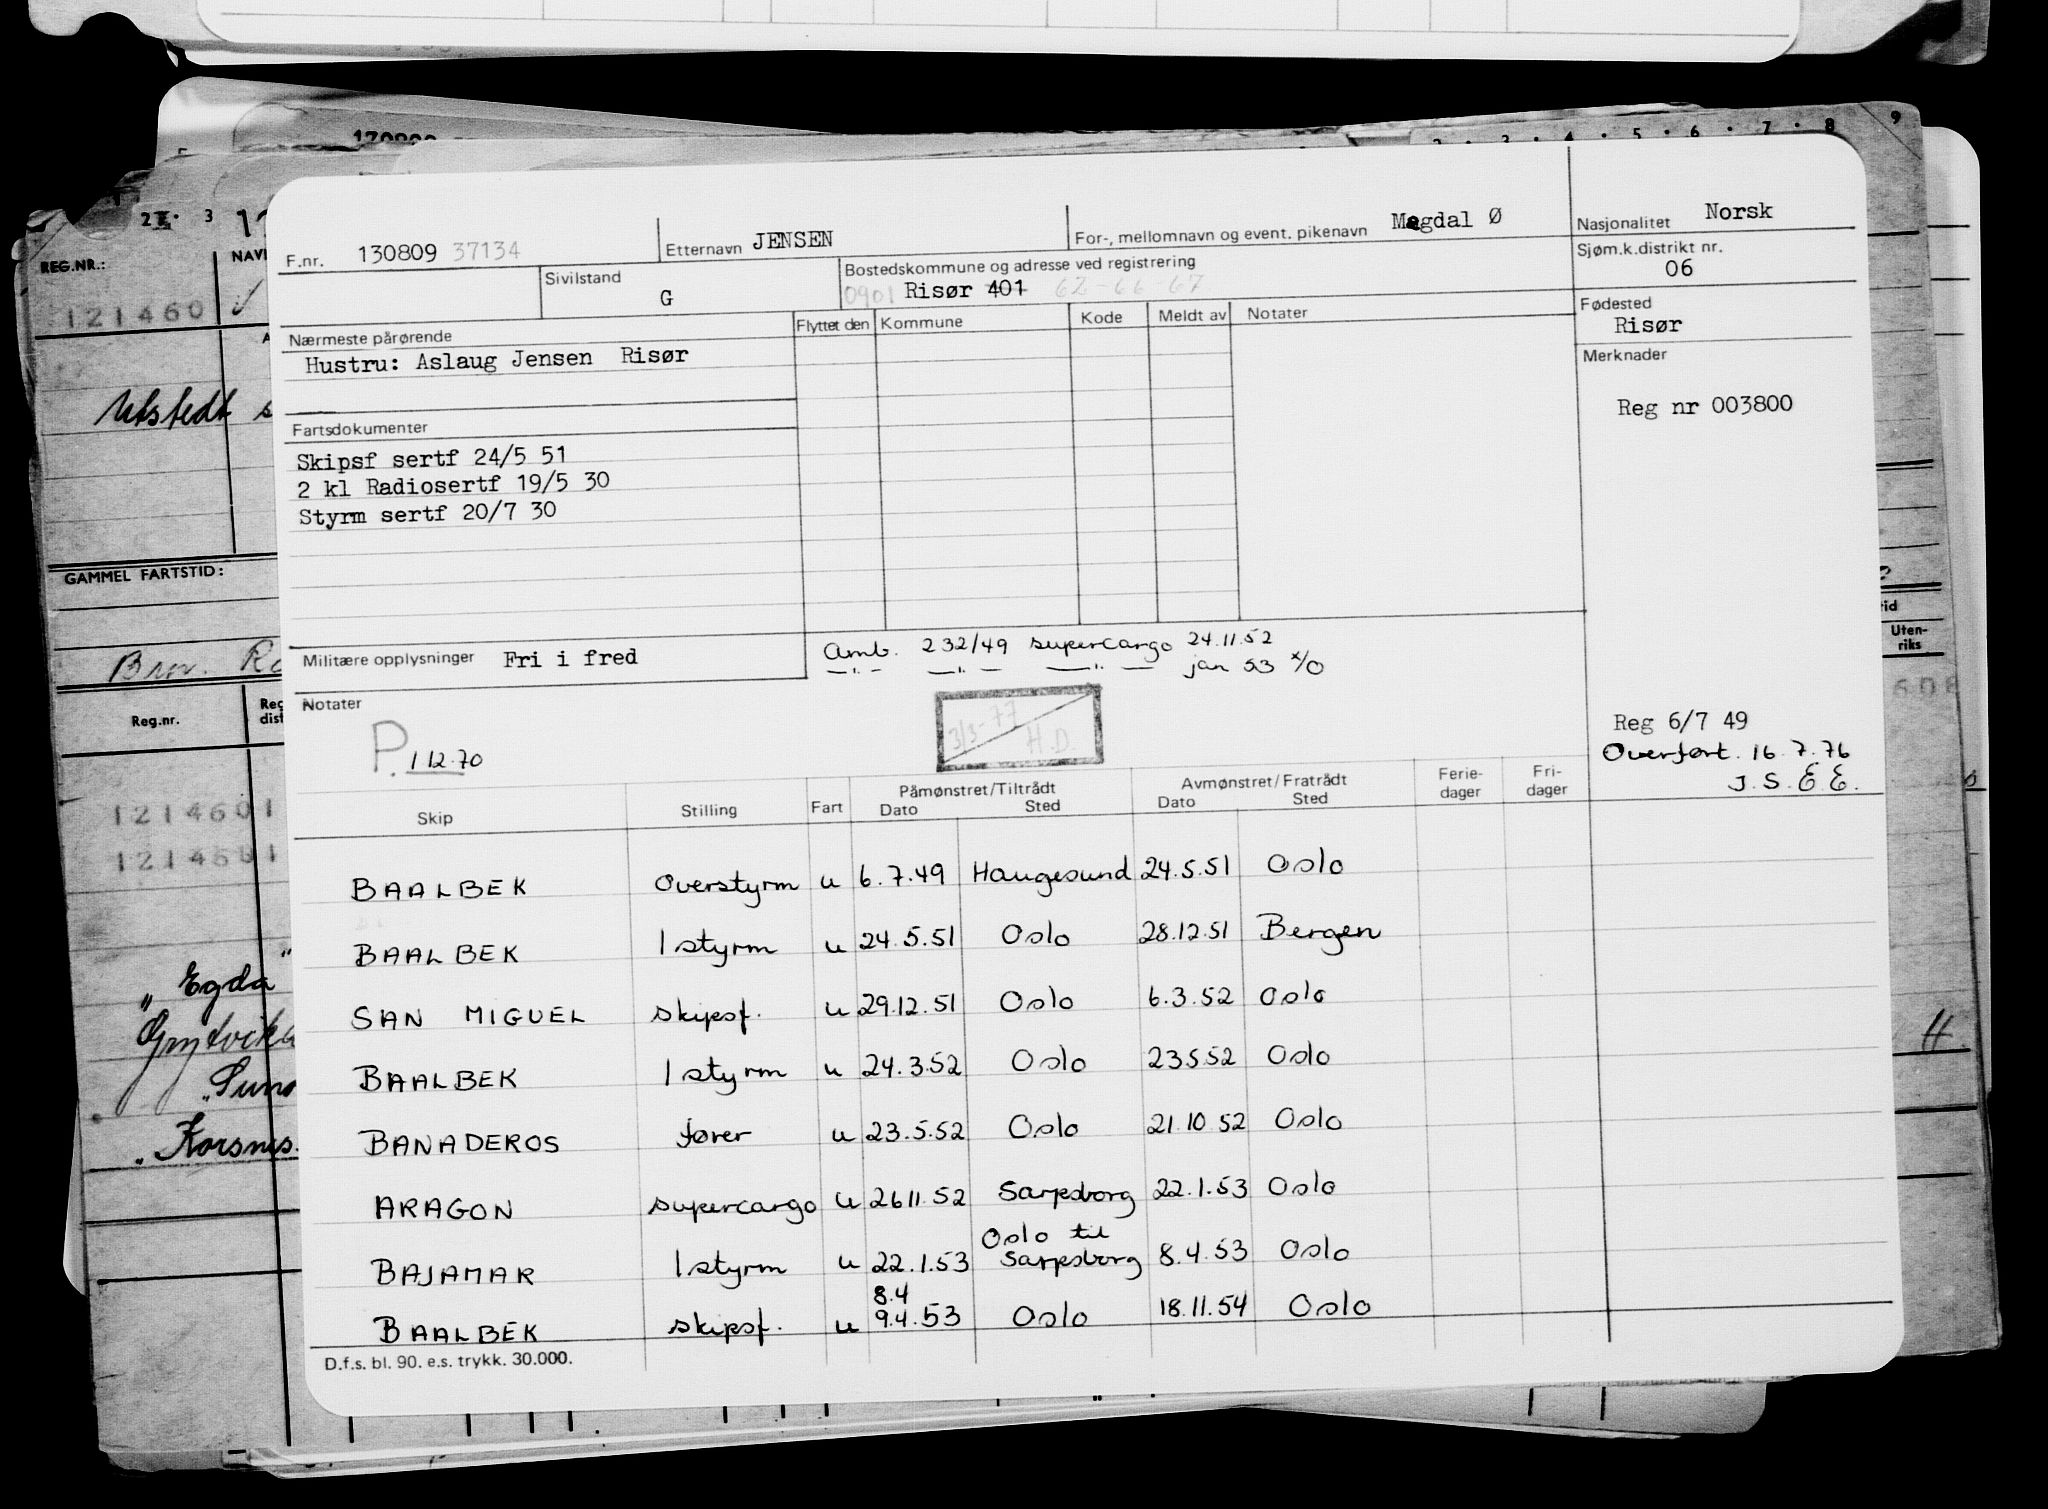 170809
2 · 3 · 4 · 5 · 6 · 7 · 8 9
2 · 3
REG.NR.:
121460
Utstedt s
GAMMEL FARTSTID:
Reg.nr.
1214601
1214601
„Egda"
„Korsnes.
Uten-
riks
H
F.nr. 130809 37134
Etternavn JENSEN
For-, mellomnavn og event. pikenavn Magdal Ø
Nasjonalitet Norsk
Sivilstand G
Bostedskommune og adresse ved registrering
0901 Risør 401 62-66-67
Sjøm.k.distrikt nr.
06
Nærmeste pårørende
Hustru: Aslaug Jensen Risør
Flyttet den Kommune Kode Meldt av Notater
Fødested
Risør
Merknader
Reg nr 003800
Fartsdokumenter
Skipsf sertf 24/5 51
2 kl Radiosertf 19/5 30
Styrm sertf 20/7 30
Militære opplysninger Fri i fred
Amb. 232/49 supercargo 24.11.52
—"— —"— —"— jan 53 x/o
Notater
P. 1 12.70
3/3-77
H.D.
Reg 6/7 49
Overført. 16.7.76
J.S.E.E.
Skip Stilling Fart Påmønstret/Tiltrådt Dato Sted Avmønstret/Fratrådt Dato Sted Ferie-dager Fri-dager
BAALBEK Overstyrm u 6.7.49 Haugesund 24.5.51 Oslo
BAALBEK 1 styrm u 24.5.51 Oslo 28.12.51 Bergen
SAN MIGUEL skipsf. u 29.12.51 Oslo 6.3.52 Oslo
BAALBEK 1 styrm u 24.3.52 Oslo 23.5.52 Oslo
BANADEROS fører u 23.5.52 Oslo 21.10.52 Oslo
ARAGON supercargo u 26.11.52 Sarpsborg 22.1.53 Oslo
Oslo til
BAJAMAR 1 styrm u 22.1.53 Sarpsborg 8.4.53 Oslo
8.4
BAALBEK skipsf. u 9.4.53 Oslo 18.11.54 Oslo
D.f.s. bl. 90. e.s. trykk. 30.000.